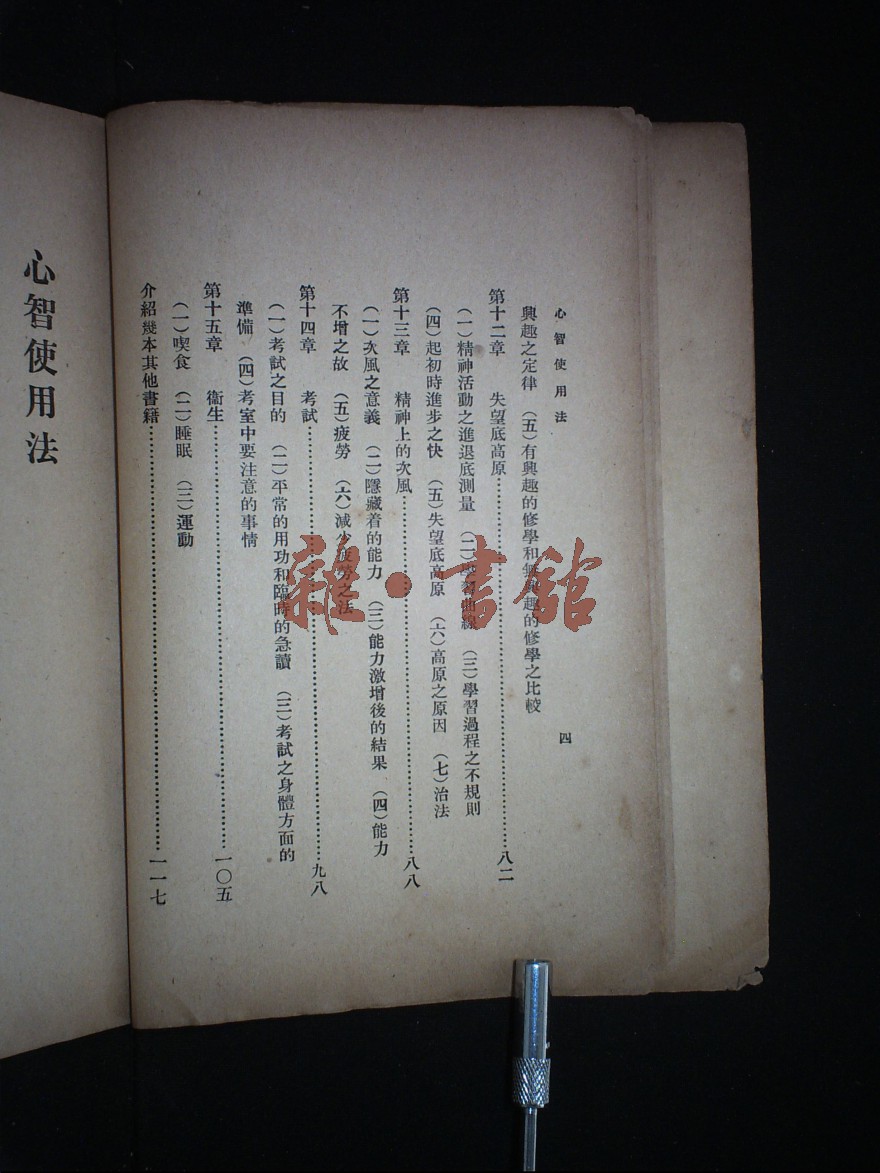 心智使用法
四
興趣之定律　（五）有興趣的修學和無興趣的修學之比較
第十二章　失望底高原……八二
（一）精神活動之進退底測量　（二）學習曲線　（三）學習過程之不規則
（四）起初時進步之快　（五）失望底高原　（六）高原之原因　（七）治法
第十三章　精神上的次風……八八
（一）次風之意義　（二）隱藏着的能力　（三）能力激增後的結果　（四）能力
不增之故　（五）疲勞　（六）減少疲勞之法
第十四章　考試……九八
（一）考試之目的　（二）平常的用功和臨時的急讀　（三）考試之身體方面的
準備　（四）考室中要注意的事情
第十五章　衞生……一〇五
（一）喫食　（二）睡眠　（三）運動
介紹幾本其他書籍……一一七
心智使用法
雜·書館